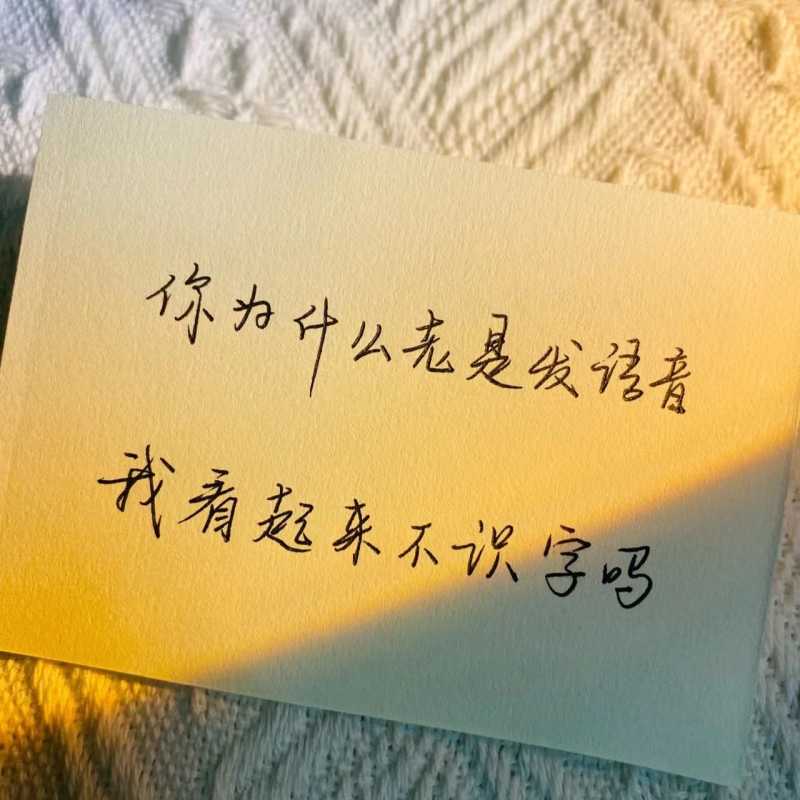 你为什么老是发语音
我看起来不识字吗